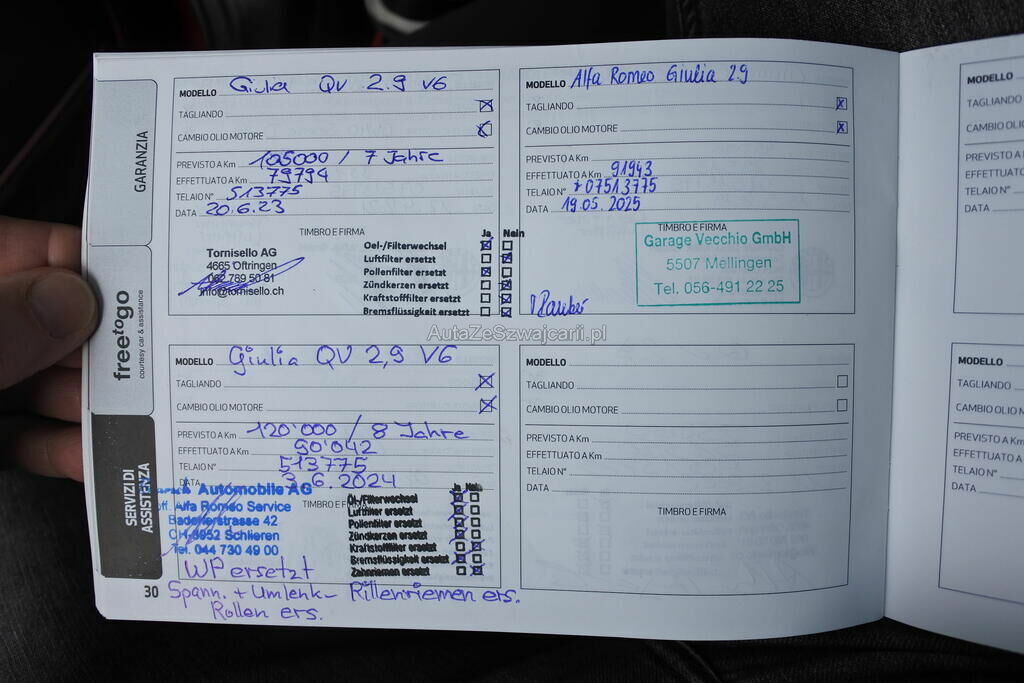 GARANZIA
freetogo
courtesy car & assistance
SERVIZI DI
ASSISTENZA
30
MODELLO Giulia QV 2.9 V6
TAGLIANDO
CAMBIO OLIO MOTORE
PREVISTO A Km 105000 / 7 Jahre
EFFETTUATO A Km 79794
TELAIO N° 513775
DATA 20.6.23
TIMBRO E FIRMA
Tornisello AG
4665 Oftringen
062 789 50 81
info@tornisello.ch
Ja Nein
Oel-/Filterwechsel
Luftfilter ersetzt
Pollenfilter ersetzt
Zündkerzen ersetzt
Kraftstofffilter ersetzt
Bremsflüssigkeit ersetzt
MODELLO Alfa Romeo Giulia 2.9
TAGLIANDO
CAMBIO OLIO MOTORE
PREVISTO A Km
EFFETTUATO A Km 91943
TELAIO N° *07513775
DATA 19.05.2025
TIMBRO E FIRMA
Garage Vecchio GmbH
5507 Mellingen
Tel. 056-491 22 25
AutaZeSzwajcarii.pl
MODELLO Giulia QV 2,9 V6
TAGLIANDO
CAMBIO OLIO MOTORE
PREVISTO A Km 120'000 / 8 Jahre
EFFETTUATO A Km 90'042
TELAIO N° 513775
DATA 3.6.2024
TIMBRO E FIRMA
Automobile AG
off. Alfa Romeo Service
Badenerstrasse 42
CH-8952 Schlieren
Tel. 044 730 49 00
Ja Nein
Öl-/Filterwechsel
Luftfilter ersetzt
Pollenfilter ersetzt
Zündkerzen ersetzt
Kraftstofffilter ersetzt
Bremsflüssigkeit ersetzt
Zahnriemen ersetzt
WP ersetzt
Spann. + Umlenk- Rillenriemen ers.
Rollen ers.
MODELLO
TAGLIANDO
CAMBIO OLIO MOTORE
PREVISTO A Km
EFFETTUATO A Km
TELAIO N°
DATA
TIMBRO E FIRMA
MODELLO
TAGLIANDO
CAMBIO OLIO
PREVISTO A Km
EFFETTUATO A
TELAIO N°
DATA
MODELLO
TAGLIANDO
CAMBIO OLIO
PREVISTO A Km
EFFETTUATO A
TELAIO N°
DATA